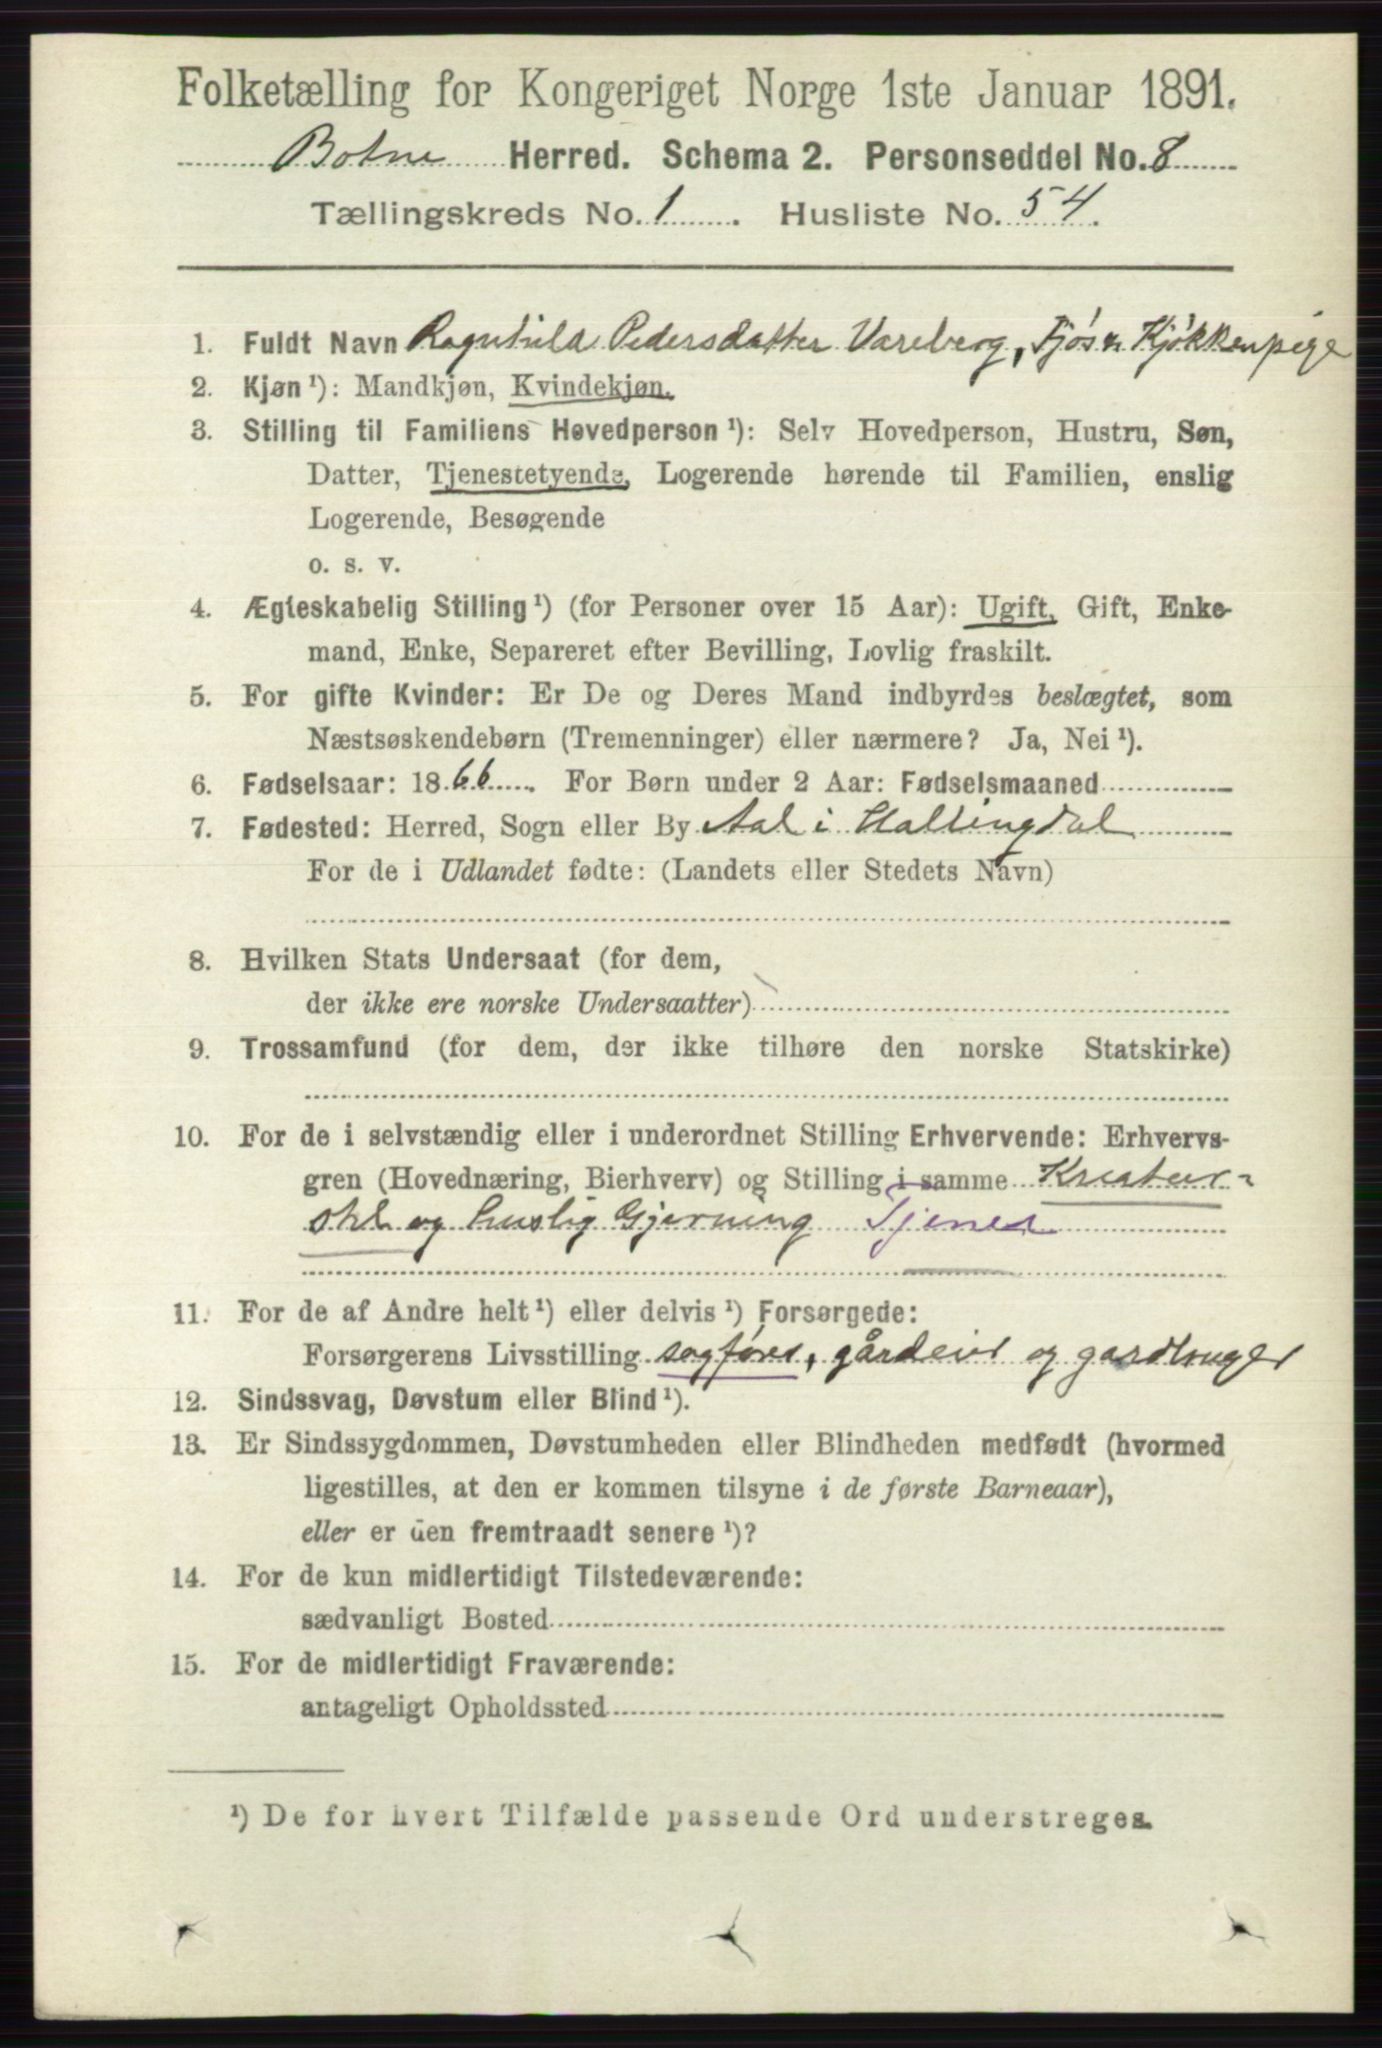 Folketælling for Kongeriget Norge 1ste Januar 1891.
Botne Herred. Schema 2. Personseddel No. 8
Tællingskreds No. 1. Husliste No. 54.
1. Fuldt Navn Ragnhild Pedersdatter Vareberg, Fjøs & Kjøkkenpige
2. Kjøn ¹): Mandkjøn, Kvindekjøn.
3. Stilling til Familiens Hovedperson ¹): Selv Hovedperson, Hustru, Søn,
Datter, Tjenestetyende, Logerende hørende til Familien, enslig
Logerende, Besøgende
o. s. v.
4. Ægteskabelig Stilling ¹) (for Personer over 15 Aar): Ugift, Gift, Enke-
mand, Enke, Separeret efter Bevilling, Lovlig fraskilt.
5. For gifte Kvinder: Er De og Deres Mand indbyrdes beslægtet, som
Næstsøskendebørn (Tremenninger) eller nærmere? Ja, Nei ¹).
6. Fødselsaar: 1866. For Børn under 2 Aar: Fødselsmaaned
7. Fødested: Herred, Sogn eller By Aal i Hallingdal
For de i Udlandet fødte: (Landets eller Stedets Navn)
8. Hvilken Stats Undersaat (for dem,
der ikke ere norske Undersaatter)
9. Trossamfund (for dem, der ikke tilhøre den norske Statskirke)
10. For de i selvstændig eller i underordnet Stilling Erhvervende: Erhvervs-
gren (Hovednæring, Bierhverv) og Stilling i samme Kreatur-
stel og huslig Gjerning Tjener
11. For de af Andre helt ¹) eller delvis ¹) Forsørgede:
Forsørgerens Livsstilling sagfører, gårdeier og gardbruger
12. Sindssvag, Døvstum eller Blind ¹).
13. Er Sindssygdommen, Døvstumheden eller Blindheden medfødt (hvormed
ligestilles, at den er kommen tilsyne i de første Barneaar),
eller er den fremtraadt senere ¹)?
14. For de kun midlertidigt Tilstedeværende:
sædvanligt Bosted
15. For de midlertidigt Fraværende:
antageligt Opholdssted
¹) De for hvert Tilfælde passende Ord understreges.